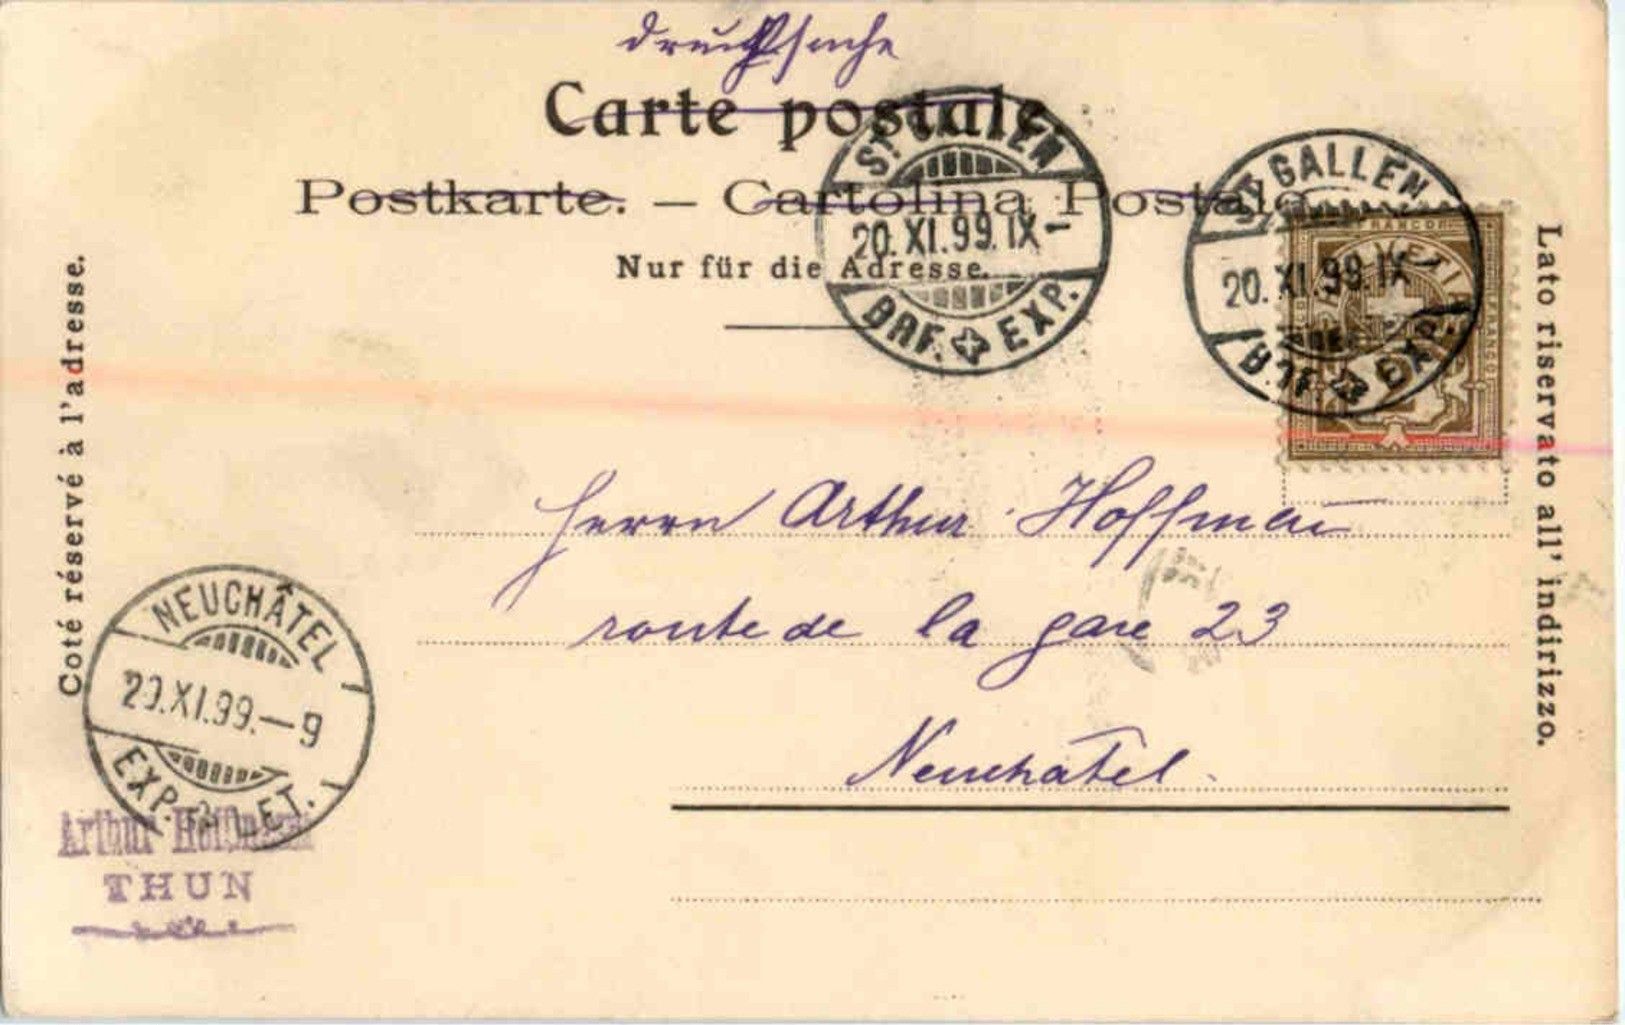 Drucksache
Carte postale.
Postkarte. — Cartolina Postale
Nur für die Adresse.
ST. GALLEN
20.XI.99.IX-
BRF. EXP.
ST. GALLEN
20.XI.99.IX
BRF. EXP.
FRANCO
HELVETIA
FRANCO
Coté réservé à l'adresse.
Lato riservato all' indirizzo.
Herrn Arthur Hoffmann
route de la gare 23
Neuchâtel.
NEUCHÂTEL
20.XI.99.—9
EXP. LET.
Arthur Hoffmann
THUN